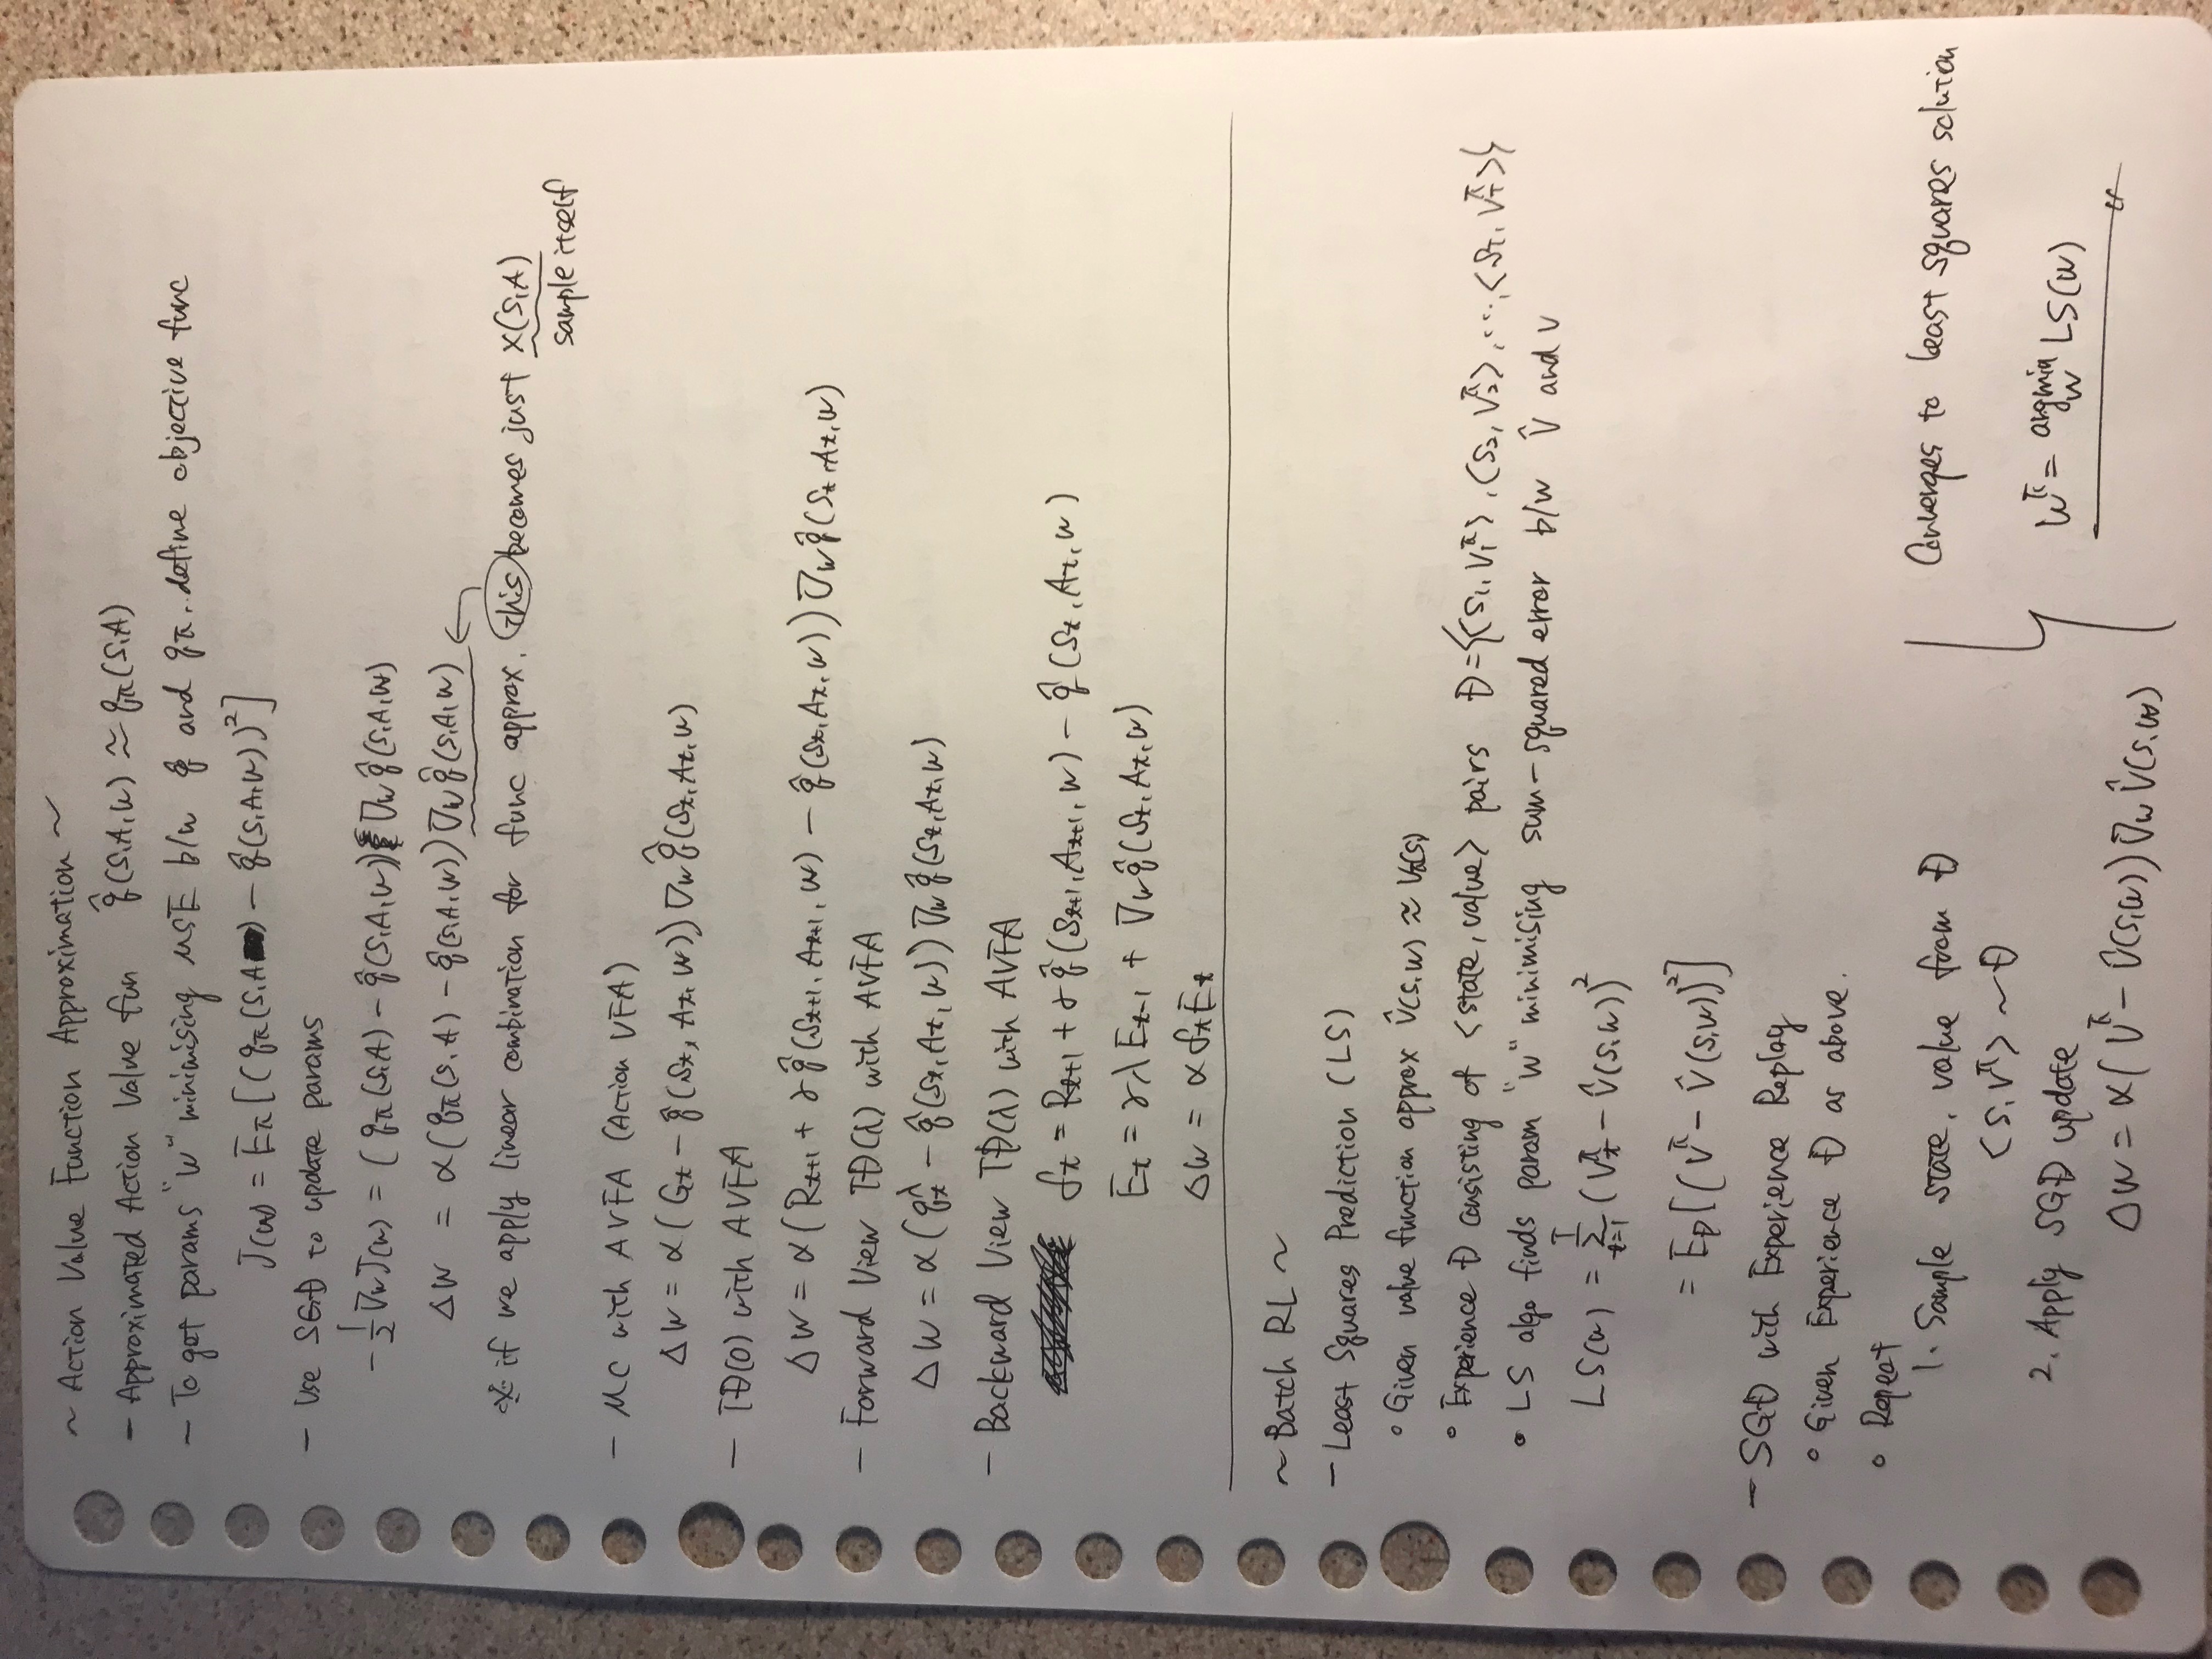 ~ Action Value Function Approximation ~
- Approximated Action Value fun q̂(S,A,w) ≈ qπ(S,A)
- To get params "w" minimising MSE b/w q̂ and qπ, define objective func
J(w) = Eπ[(qπ(S,A) - q̂(S,A,w))²]
- Use SGD to update params
-1/2 ∇w J(w) = (qπ(S,A) - q̂(S,A,w)) ∇w q̂(S,A,w)
Δw = α(qπ(S,A) - q̂(S,A,w)) ∇w q̂(S,A,w) ←
※ if we apply linear combination for func approx, this becomes just x(S,A)
sample itself
- MC with AVFA (Action VFA)
Δw = α(Gt - q̂(St, At, w)) ∇w q̂(St, At, w)
- TD(0) with AVFA
Δw = α(Rt+1 + γ q̂(St+1, At+1, w) - q̂(St, At, w)) ∇w q̂(St, At, w)
- Forward View TD(λ) with AVFA
Δw = α(qtλ - q̂(St, At, w)) ∇w q̂(St, At, w)
- Backward View TD(λ) with AVFA
δt = Rt+1 + γ q̂(St+1, At+1, w) - q̂(St, At, w)
Et = γλ Et-1 + ∇w q̂(St, At, w)
Δw = α δt Et
~ Batch RL ~
- Least Squares Prediction (LS)
° Given value function approx V̂(S,w) ≈ Vπ(S)
° Experience D consisting of <state, value> pairs D = {<S1, V1π>, <S2, V2π>, ..., <ST, VTπ>}
° LS algo finds param "w" minimising sum-squared error b/w V̂ and v
LS(w) = Σ t=1 T (Vtπ - V̂(S,w))²
= ED[(Vπ - V̂(S,w))²]
- SGD with Experience Replay
° Given Experience D as above.
° Repeat
1. Sample state, value from D
<S, Vπ> ~ D
2. Apply SGD update
Δw = α(Vπ - V̂(S,w)) ∇w V̂(S,w)
Converges to least squares solution
wπ = argmin w LS(w)